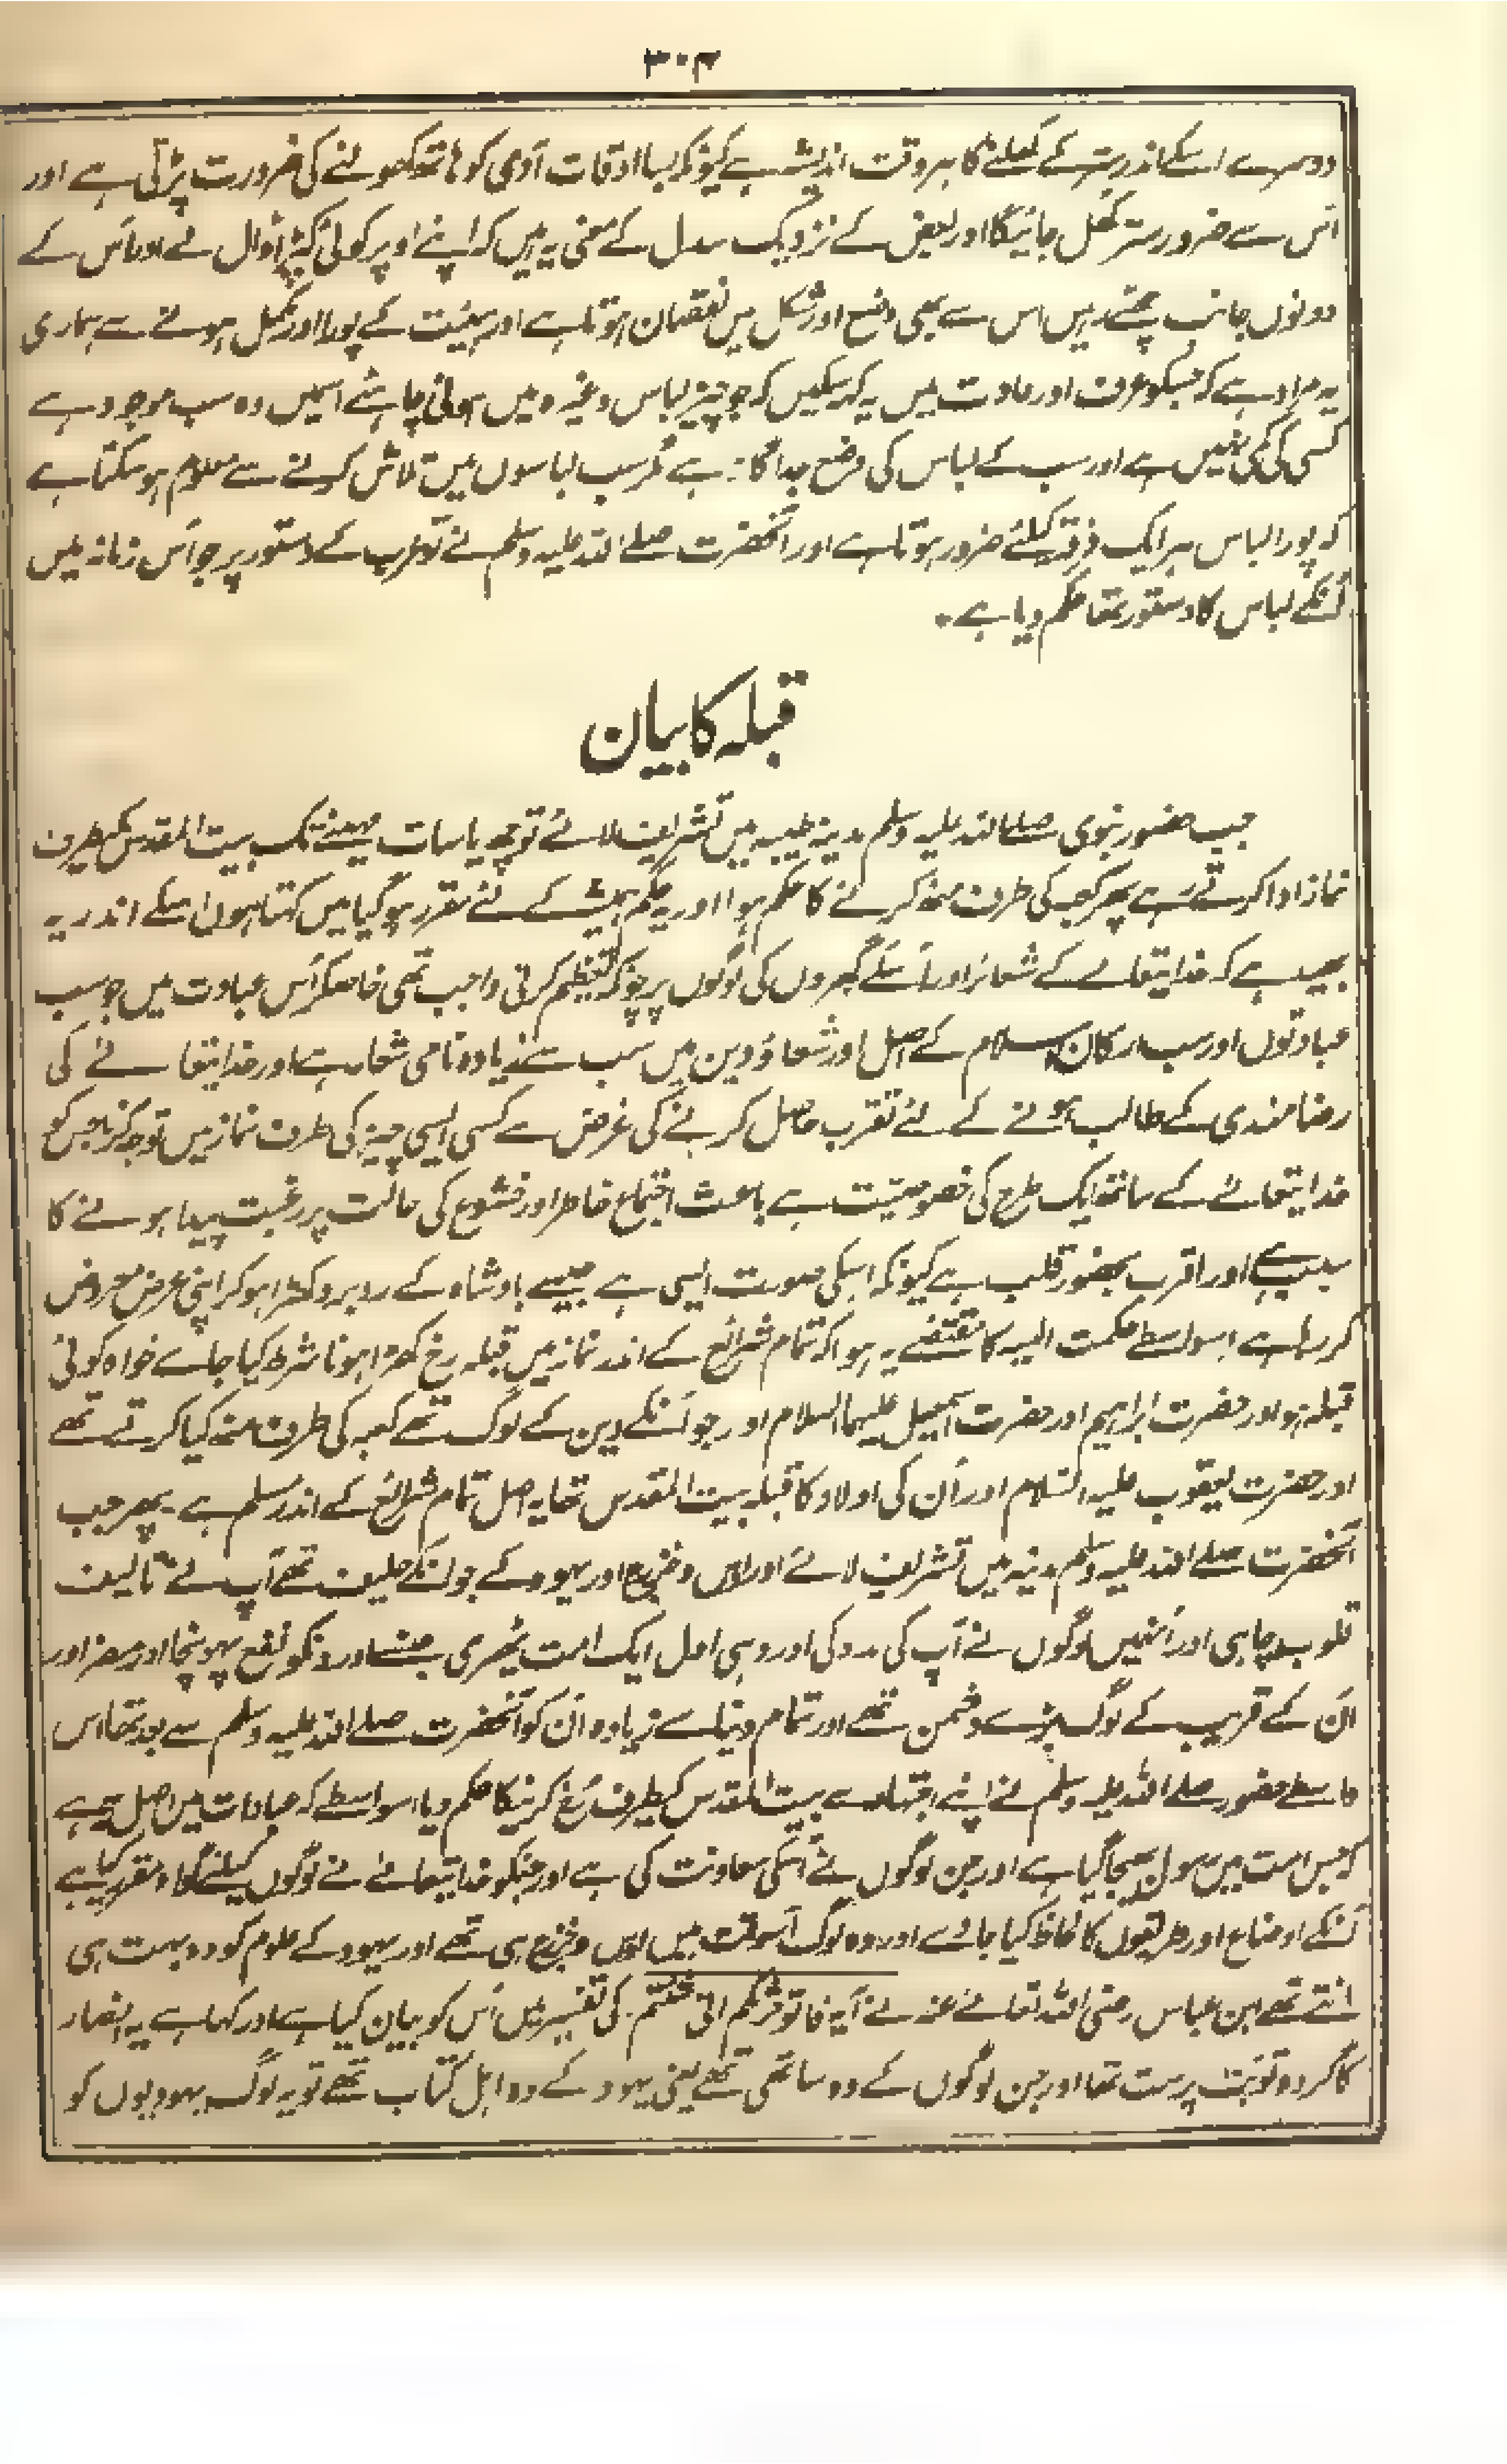 ۳۰۴
دوسرے اسکے اندر ستر کے کھلنے کا ہر وقت اندیشہ ہے کیونکہ بسا اوقات آدمی کو ہاتھ کھولنے کی ضرورت پڑتی ہے اور
اُس سے ضرور ستر کھل جائیگا اور بعض کے نزدیک سدل کے معنی یہ ہیں کہ اپنے اوپر کوئی کپڑا ڈال لے اور اُس کے
دونوں جانب چھٹے رہیں اس سے بھی وضع اور شکل میں نقصان ہوتا ہے اور ہیئت کے پورا اور مکمل ہونے سے ہماری
یہ مراد ہے کہ جسکو عرف اور عادت میں یہ کہہ سکیں کہ جو چیز لباس وغیرہ میں ہونی چاہئے اسمیں وہ سب موجود ہے
کسی کی کمی نہیں ہے اور سب کے لباس کی وضع جداگانہ ہے مگر سب لباسوں میں تلاش کرنے سے معلوم ہو سکتا ہے
کہ پورا لباس ہر ایک فرقہ کیلئے ضرور ہوتا ہے اور آنحضرت صلے اللہ علیہ وسلم نے تو عرب کے دستور پر جو اُس زمانہ میں
اُنکے لباس کا دستور تھا حکم دیا ہے۔
قبلہ کا بیان
جب حضور نبوی صلے اللہ علیہ وسلم مدینہ طیبہ میں تشریف لائے تو چھ یا سات مہینے تک بیت المقدس کیطرف
نماز ادا کرتے رہے پھر کعبہ کی طرف منھ کرنے کا حکم ہوا اور یہ حکم ہمیشہ کے لئے مقرر ہو گیا میں کہتا ہوں اسکے اندر یہ
بھید ہے کہ خدا یتعالے کے شعائر اور اُسکے گھروں کی لوگوں پر چونکہ تعظیم کرنی واجب تھی خاصکر اُس عبادت میں جو سب
عبادتوں اور سب ارکان اسلام کے اصل اور شعائر دین میں سب سے زیادہ نامی شعار ہے اور خدا یتعالے کی
رضامندی کے طالب ہونے کے لئے تقرب حاصل کرنے کی غرض سے کسی ایسی چیز کی طرف نماز میں توجہ کرنا جس کو
خدا یتعالے کے ساتھ ایک طرح کی خصوصیت ہے باعث اجتماع خاطر اور خشوع کی حالت پر رغبت پیدا ہونے کا
سبب ہے اور اقرب بحضور قلب ہے کیونکہ اسکی صورت ایسی ہے جیسے بادشاہ کے روبرو کھڑا ہو کر اپنی عرض معروض
کر رہا ہے اسواسطے حکمت الہیہ کا مقتضے یہ ہوا کہ تمام شرائع کے اندر نماز میں قبلہ رخ کھڑا ہونا شرط کیا جاے خواہ کوئی
قبلہ ہو اور حضرت ابراہیم اور حضرت اسمعیل علیہما السلام اور جو اُنکے دین کے لوگ تھے کعبہ کی طرف منھ کیا کرتے تھے
اور حضرت یعقوب علیہ السلام اور اُن کی اولاد کا قبلہ بیت المقدس تھا یہ اصل تمام شرائع کے اندر مُسلم ہے ۔ پھر جب
آنحضرت صلے اللہ علیہ وسلم مدینہ میں تشریف لائے اور اوس وخزرج اور یہود کے جو انکے حلیف تھے آپ نے تالیف
قلوب چاہی اور اُنہیں لوگوں نے آپ کی مدد کی اور وہی اول ایک امت ٹھری جنسے اوردنکو نفع پہونچا اور مضر اور
اُن کے قریب کے لوگ بڑے دشمن تھے اور تمام دنیا سے زیادہ اُن کو آنحضرت صلے اللہ علیہ وسلم سے بعد تھا اس
واسطے حضور صلے اللہ علیہ وسلم نے اپنے اجتہاد سے بیت المقدس کیطرف رُخ کرنیکا حکم دیا اسواسطے کہ عبادات میں اصل یہی ہے
کہ جس امت میں رسول بھیجا گیا ہے اور جن لوگوں نے اُسکی معاونت کی ہے اور جنکو خدا یتعالے نے لوگوں کیلئے گواہ مقرر کیا ہے
اُنکے اوضاع اور طریقوں کا لحاظ کیا جائے اور وہ لوگ اُسوقت میں اوس وخزرج ہی تھے اور یہود کے علوم کو وہ بہت ہی
مانتے تھے ابن عباس رضی اللہ تعالے عنہ نے آیہ فاتوا حرثکم انّٰی شئتم کی تفسیر میں اُس کو بیان کیا ہے اور کہا ہے یہ انصار
کا گروہ تو بُت پرست تھا اور جن لوگوں کے وہ ساتھی تھے یعنی یہود کے وہ اہل کتاب تھے تو یہ لوگ یہودیوں کو